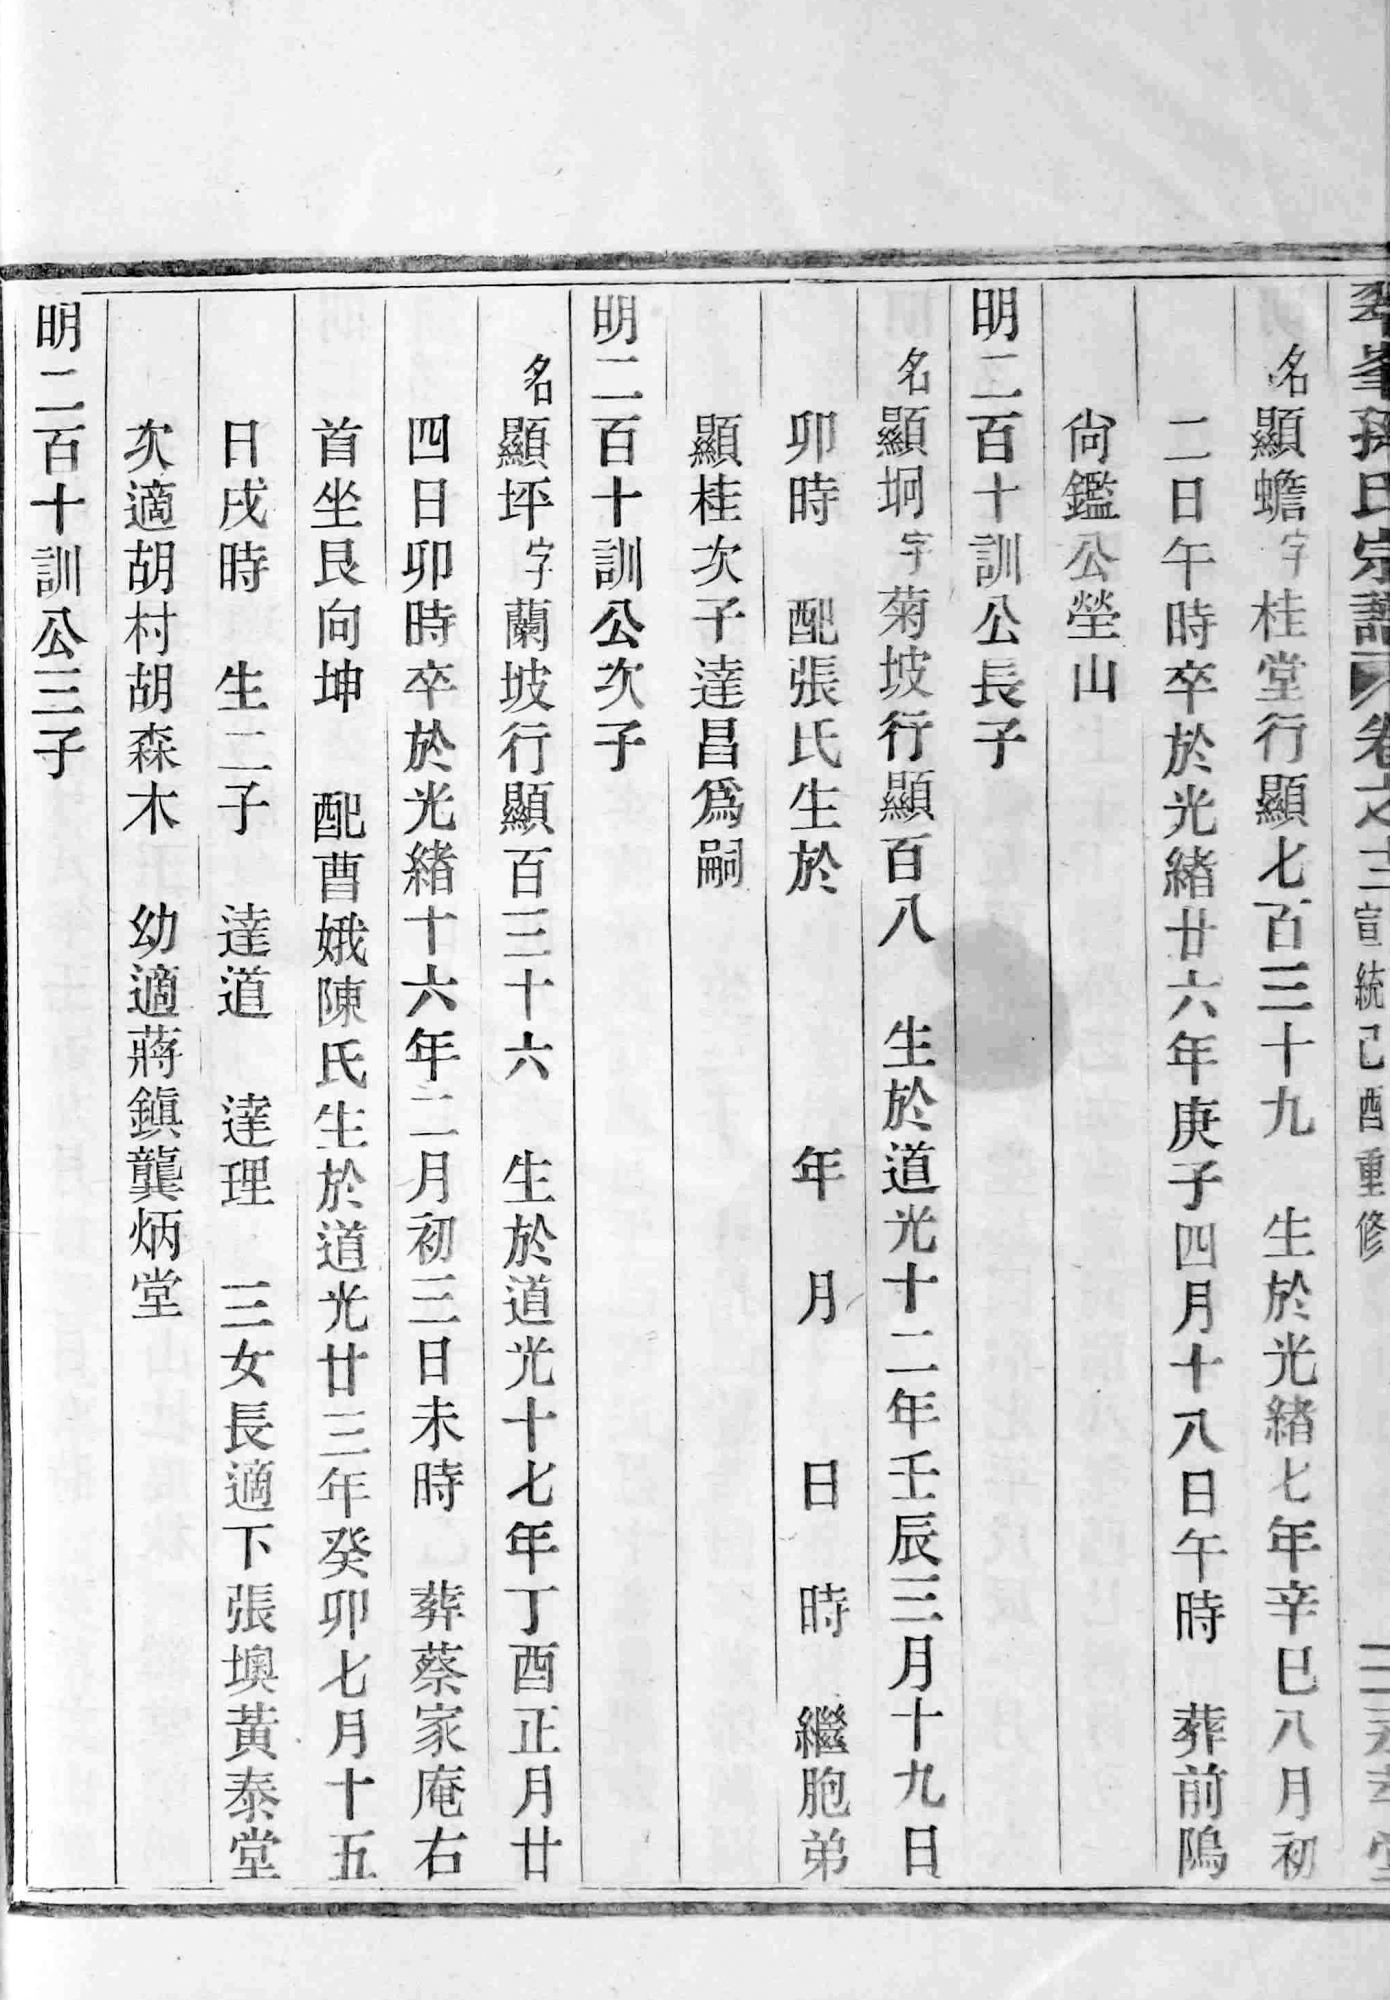 孫氏宗譜 卷之三 宣統己酉重修 堂
名顯蟾字桂堂行顯七百三十九 生於光緒七年辛巳八月初
二日午時卒於光緒廿六年庚子四月十八日午時 葬前隖
尙鑑公塋山
明二百十訓公長子
名顯坰字菊坡行顯百八 生於道光十二年壬辰三月十九日
卯時 配張氏生於 年 月 日 時 繼胞弟
顯桂次子達昌爲嗣
明二百十訓公次子
名顯坪字蘭坡行顯百三十六 生於道光十七年丁酉正月廿
四日卯時卒於光緒十六年二月初三日未時 葬蔡家庵右
首坐艮向坤 配曹娥陳氏生於道光廿三年癸卯七月十五
日戌時 生二子 達道 達理 三女長適下張墺黃泰堂
次適胡村胡森木 幼適蔣鎭龔炳堂
明二百十訓公三子